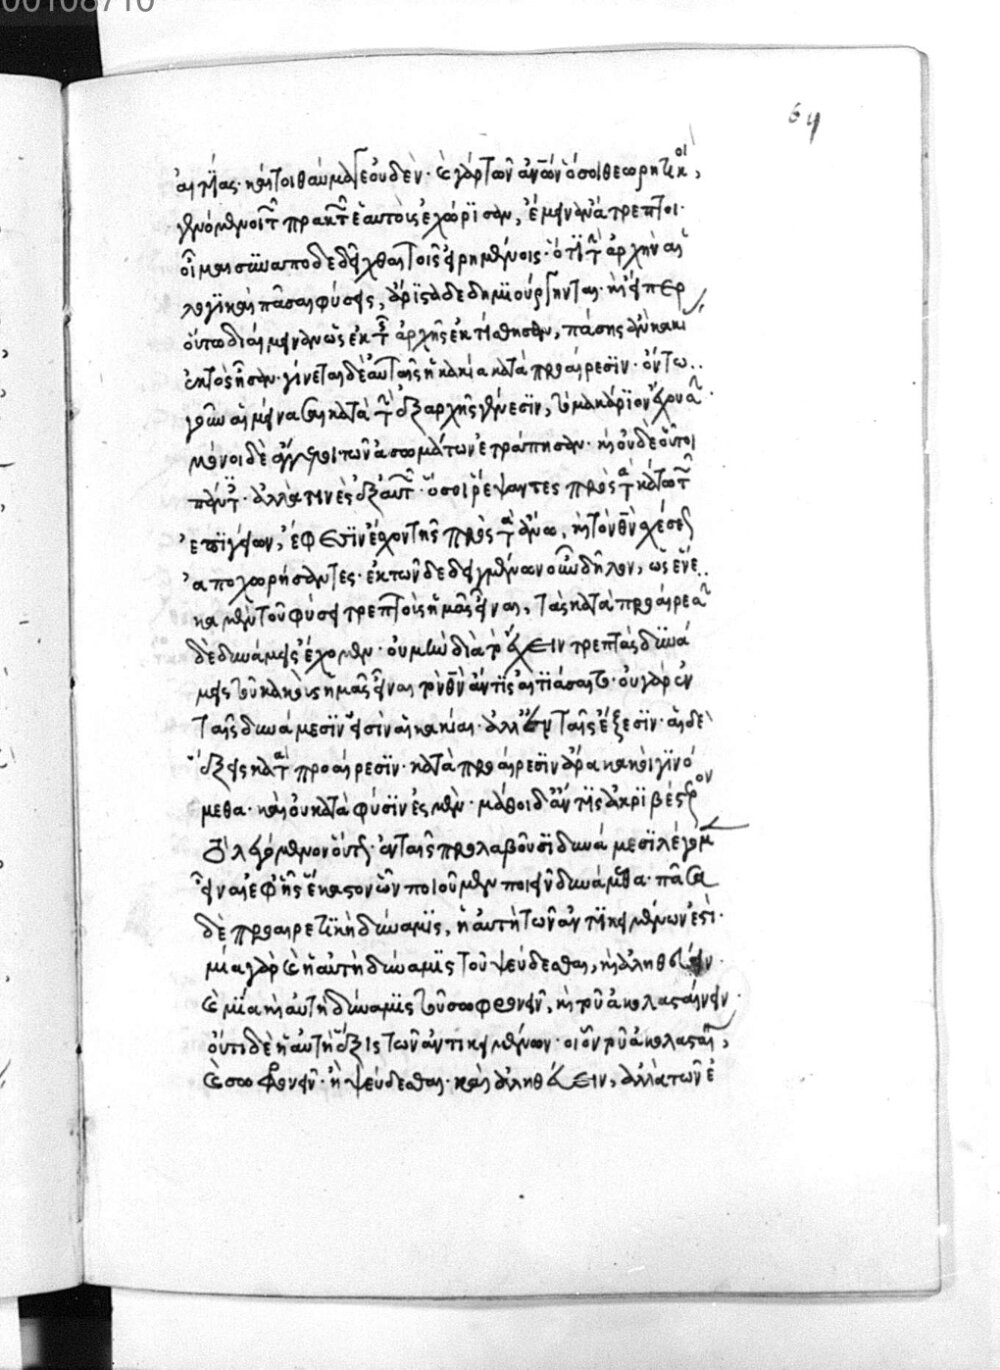 αἰτίας· καίτοι θαυμαστὸν οὐδὲν· καὶ γὰρ τῶν ἀνῶν ὅσοι θεωρητικοὶ,
γενόμενοι τῶν πρακτέων ἑαυτοὺς ἐχώρισαν, ἔμειναν ἄτρεπτοι·
οἶμαι συναποδεδεῖχθαι τοῖς εἰρημένοις· ὅτι τὴν ἀρχὴν αἱ
λογικαὶ πᾶσαι φύσεις, ἄριστα δεδημιούργηνται· καὶ εἴπερ
οὕτω διέμειναν ὡς ἐκ τῆς ἀρχῆς ἐκτίσθησαν, πάσης ἂν κακί
ἐκτὸς ἦσαν· γίνεται δὲ αὐταῖς ἡ κακία κατὰ προαίρεσιν· ὄντω
γοῦν αἱ μείνασαι κατὰ τὴν ἐξαρχῆς γένεσιν, τὸ μακάριον ἔχουσι·
μόνοι δὲ ἄγγελοι τῶν ἀσωμάτων ἐτράπησαν· καὶ οὐδὲ οὗτοι
πάντες· ἀλλά τινὲς ἐξ αὐτῶν· ὅσοι ῥέψαντες πρὸς τὰ κάτω τῶν
ἐπιγείων, ἔφεσιν ἔσχον τῆς πρὸς τὰ ἄνω, καὶ τὸν θν σχέσεως
ἀποχωρήσαντες· ἐκ τῶν δεδειγμένων οὖν δῆλον, ὡς ἕνε
κα μὲν τοῦ φύσει τρεπτοὺς ἡμᾶς εἶναι, τὰς κατὰ προαίρεσιν
δὲ δυνάμεις ἔχομεν· οὐ μὴν διὰ τὸ ἔχειν τρεπτὰς δυνά
μεις τοῦ κακοὺς ἡμᾶς εἶναι τὸν θν ἄν τις αἰτιάσαιτο· οὐ γὰρ ἐν
ταῖς δυνάμεσιν εἰσὶν αἱ κακίαι· ἀλλ' ἐν ταῖς ἕξεσιν· αἱ δὲ
ἕξεις κατὰ προαίρεσιν· κατὰ προαίρεσιν ἄρα κακοὶ γινό
μεθα· καὶ οὐ κατὰ φύσιν ἐσμὲν· μάθοι δ' ἄν τις ἀκριβέστερον
τὸ λεγόμενον οὕτως· ἐν ταῖς προλαβοῦσι δυνάμεσι λέγομεν
εἶναι ἐφ' ἧς ἕκαστον ὧν ποιοῦμεν ποιεῖν δυνάμεθα· πᾶσα
δὲ προαιρετικὴ δύναμις, ἡ αὐτὴ τῶν ἀντικειμένων ἐστὶ·
μία γὰρ καὶ ἡ αὐτὴ δύναμις τοῦ ψεύδεσθαι, καὶ ἀληθεύειν·
καὶ μία καὶ ἡ αὐτὴ δύναμις τοῦ σωφρονεῖν, καὶ τοῦ ἀκολασταίνειν·
οὐκέτι δὲ ἡ αὐτὴ ἕξις τῶν ἀντικειμένων· οἷον τοῦ ἀκολασταίνειν,
καὶ σωφρονεῖν· ἢ ψεύδεσθαι· καὶ ἀληθεύειν, ἀλλὰ τῶν ἐ